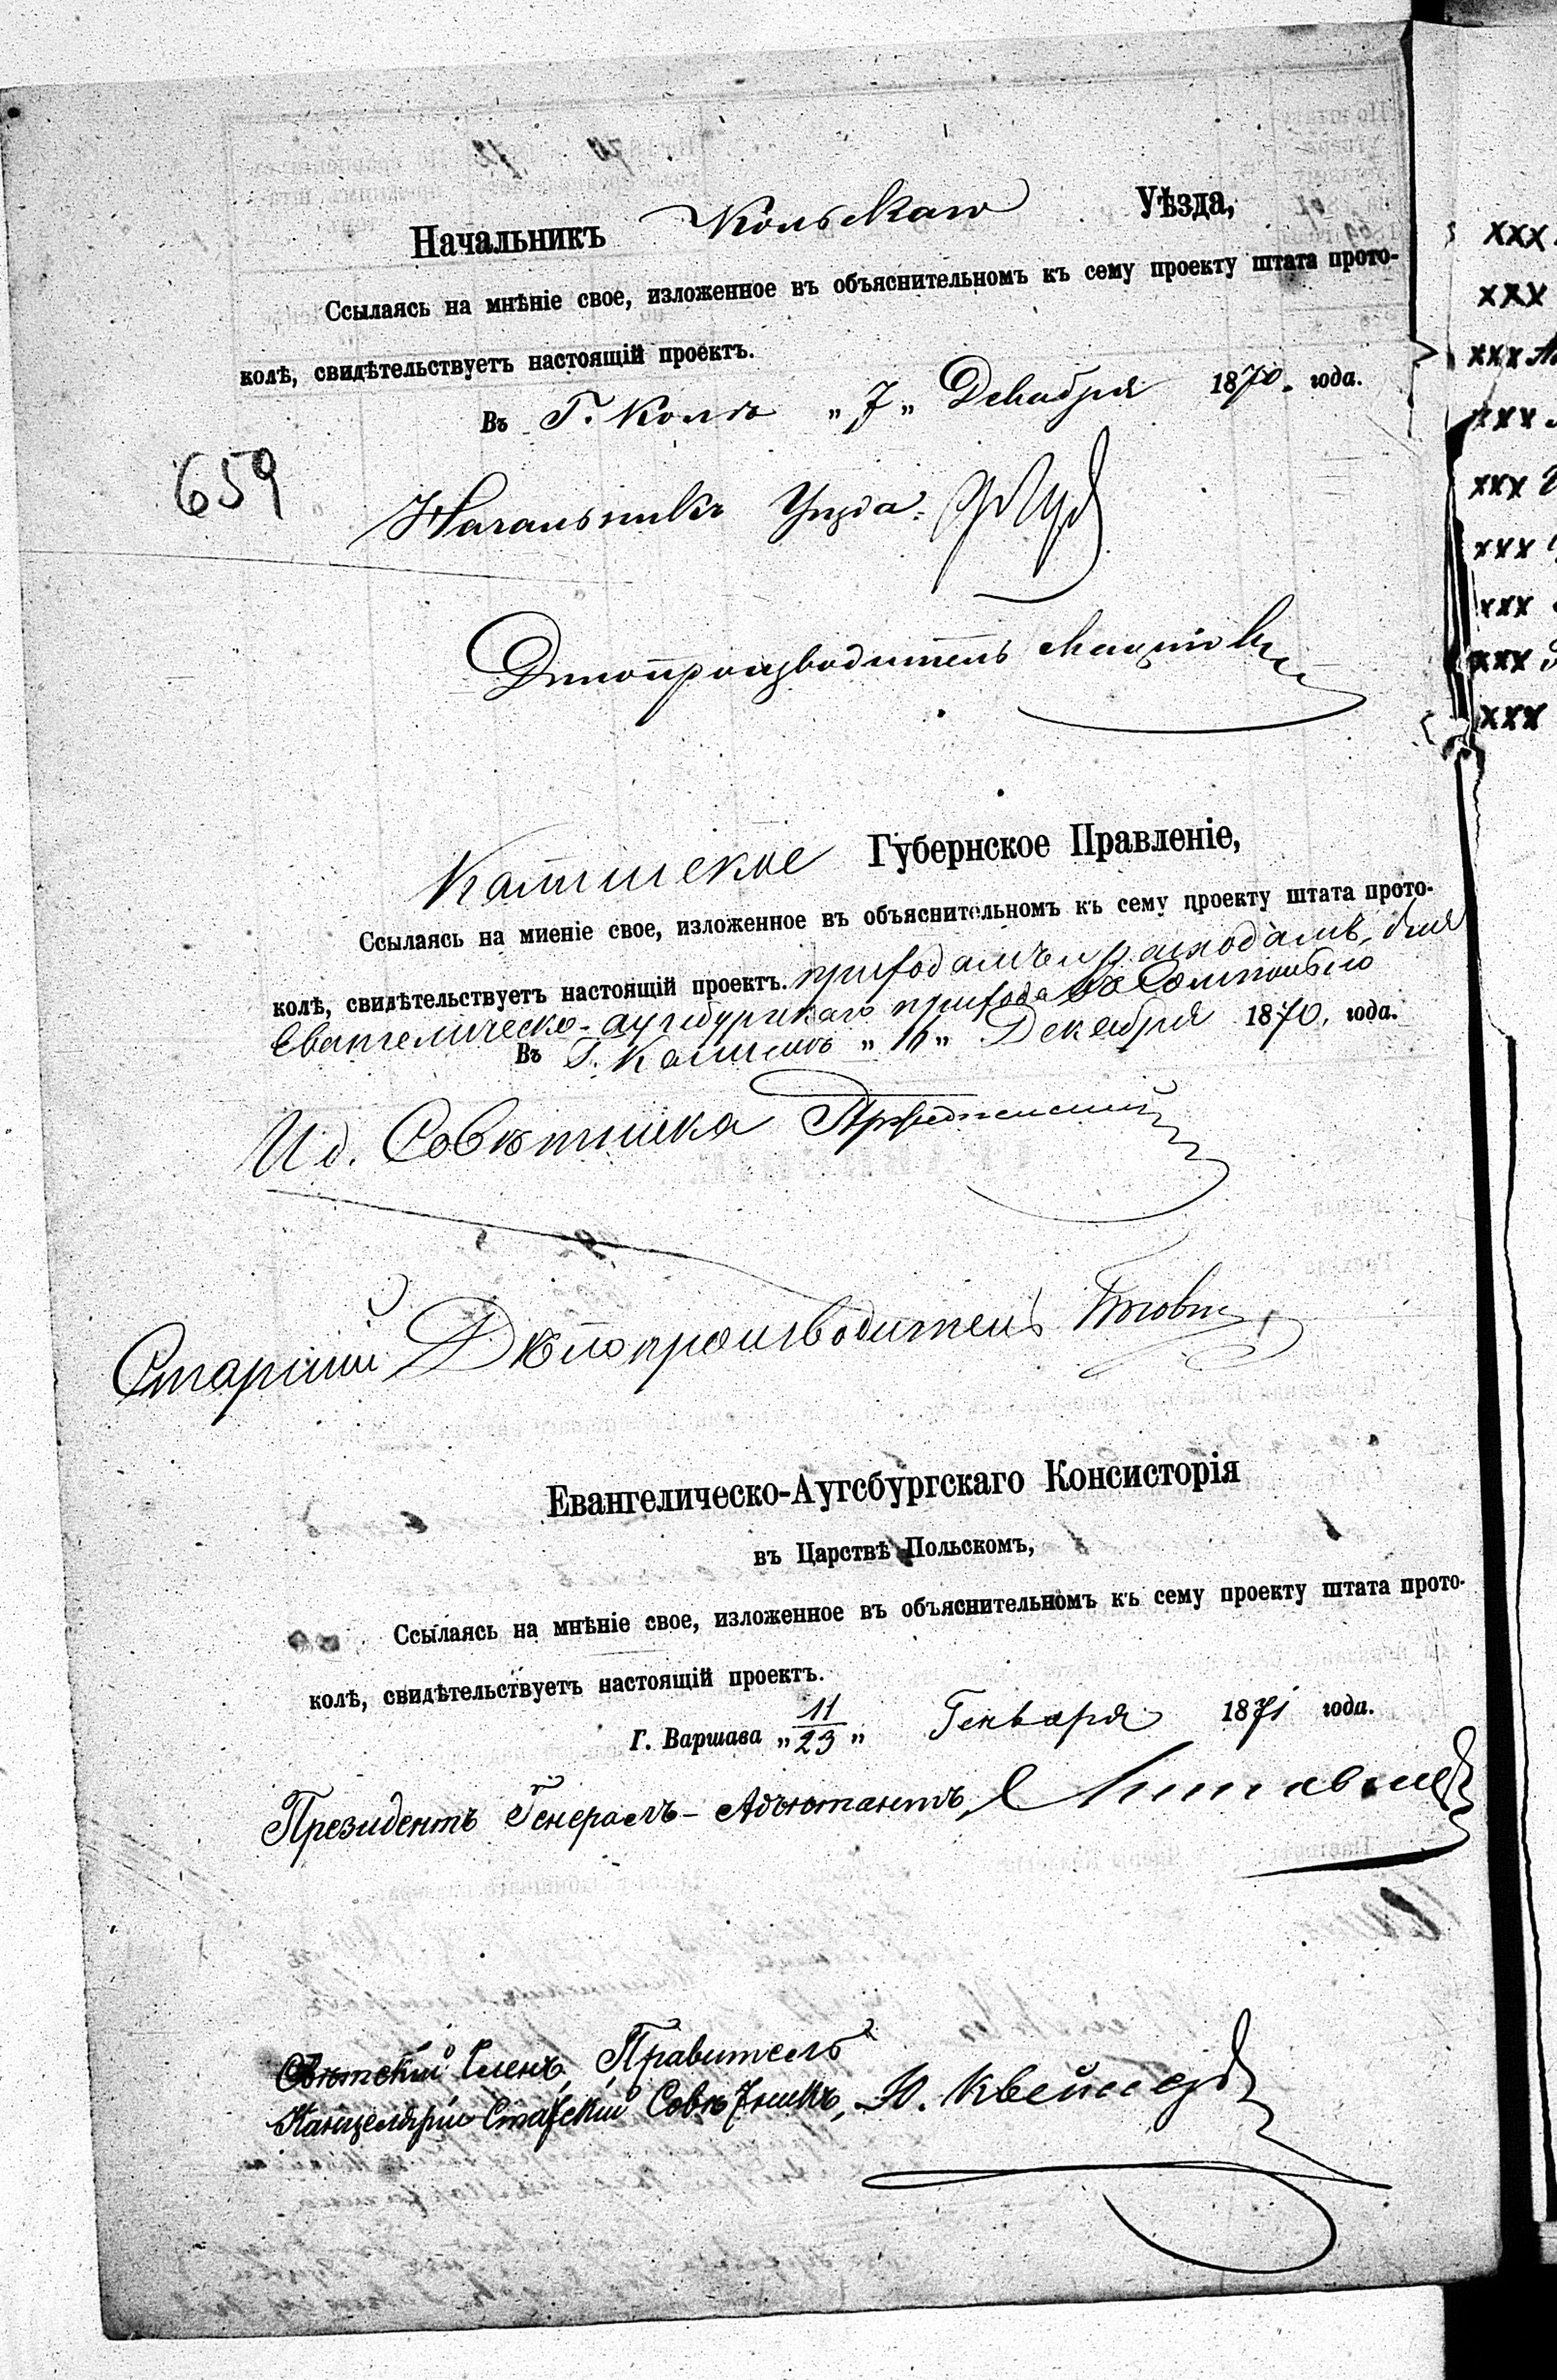 Начальникъ Кольскаго Уѣзда,
Ссылаясь на мнѣніе свое, изложенное въ объяснительномъ къ сему проекту штата прото-
колѣ, свидѣтельствуетъ настоящій проектъ.
Въ Г. Колѣ „7„ Декабря 1870. года.
659
Начальникъ Уѣзда:
Дѣлопроизводитель
Калишское Губернское Правленіе,
Ссылаясь на миеніе свое, изложенное въ объяснительномъ къ сему проекту штата прото-
колѣ, свидѣтельствуетъ настоящій проектъ. приходамъ и расходамъ, для
Евангелическо-аугсбургскаго прихода въ
Въ Г. Калишѣ „ „ Декабря 1870, года.
И д. Совѣтника
Старшій Дѣлопроизводитель
Евангелическо-Аугсбургскаго Консисторія
въ Царствѣ Польскомъ,
Ссылаясь на мнѣніе свое, изложенное въ объяснительномъ къ сему проекту штата прото-
колѣ, свидѣтельствуетъ настоящій проектъ.
Г. Варшава „11/23„ Генваря 1871 года.
Президентъ Генералъ-Адъютантъ,
Свѣтскій Членъ, Правитель
Канцеляріи Статскій Совѣтникъ,
xxx
xxx
xxx
xxx
xxx
xxx
xxx
xxx
xxx